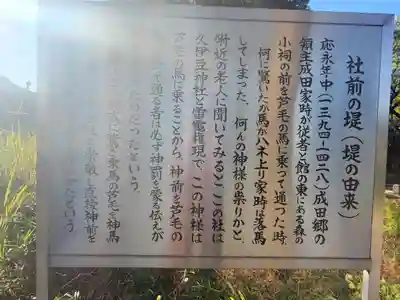 社前の堤（堤の由来）
応永年中（一三九四-一四二八）成田郷の
領主成田家時が従者と館の東にある森の
小祠の前を芦毛の馬に乗って通った時、
何に驚いたか馬が八木上り家時は落馬
してしまった。何んの神様の祟りかと、
附近の老人に聞いてみるとこの社は
久伊豆神社と雷電権現で、この神様は
芦毛の馬に乗ることから、神前を芦毛の
で通る者は必ず神罰を蒙る伝えが
だったという。
乗馬の芦毛を神馬
神前を
たという